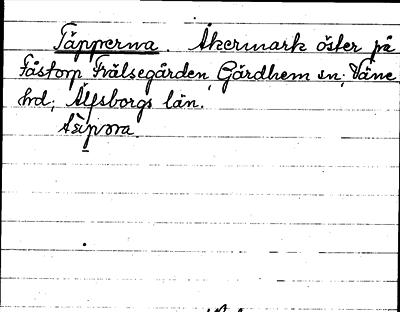 Täpperna. Åkermark öster på
Fåstorp Frälsegården, Gärdhem sn; Väne
hrd; Älfsborgs län.